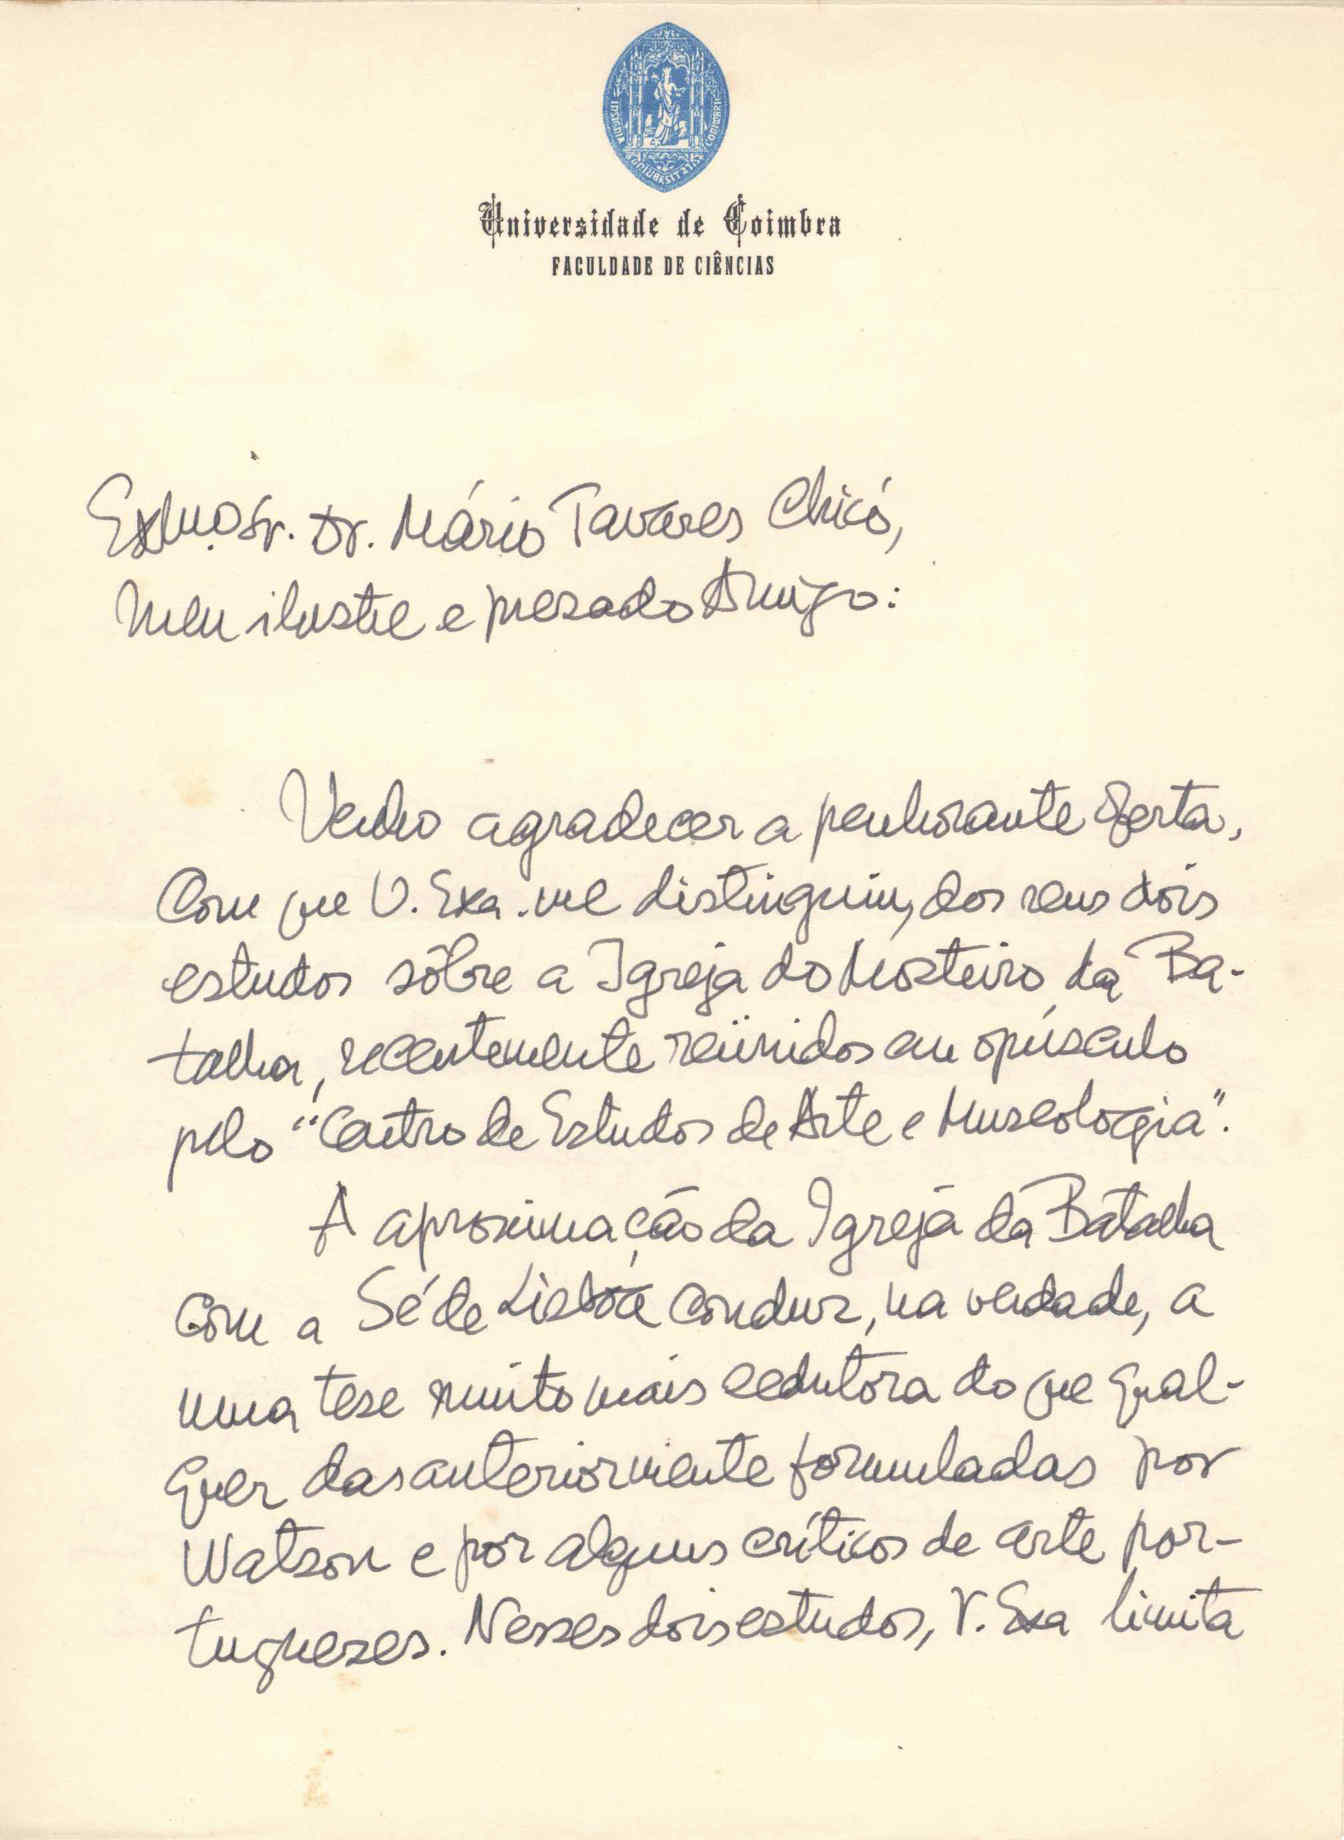 INSIGNIA UNIVERSITATIS CONIMBRI
Universidade de Coimbra
FACULDADE DE CIÊNCIAS
Exmo. Sr. Dr. Mário Tavares Chicó,
Meu ilustre e prezado Amigo:
Venho agradecer a penhorante oferta,
Com que V. Exa. me distinguiu, dos seus dois
estudos sôbre a Igreja do Mosteiro da Ba-
talha, recentemente reünidos em opúsculo
pelo "Centro de Estudos de Arte e Museologia".
A aproximação da Igreja da Batalha
com a Sé de Lisboa conduz, na verdade, a
uma tese muito mais sedutora do que qual-
quer das anteriormente formuladas por
Watson e por alguns críticos de arte por-
tugueses. Nesses dois estudos, V. Exa limita